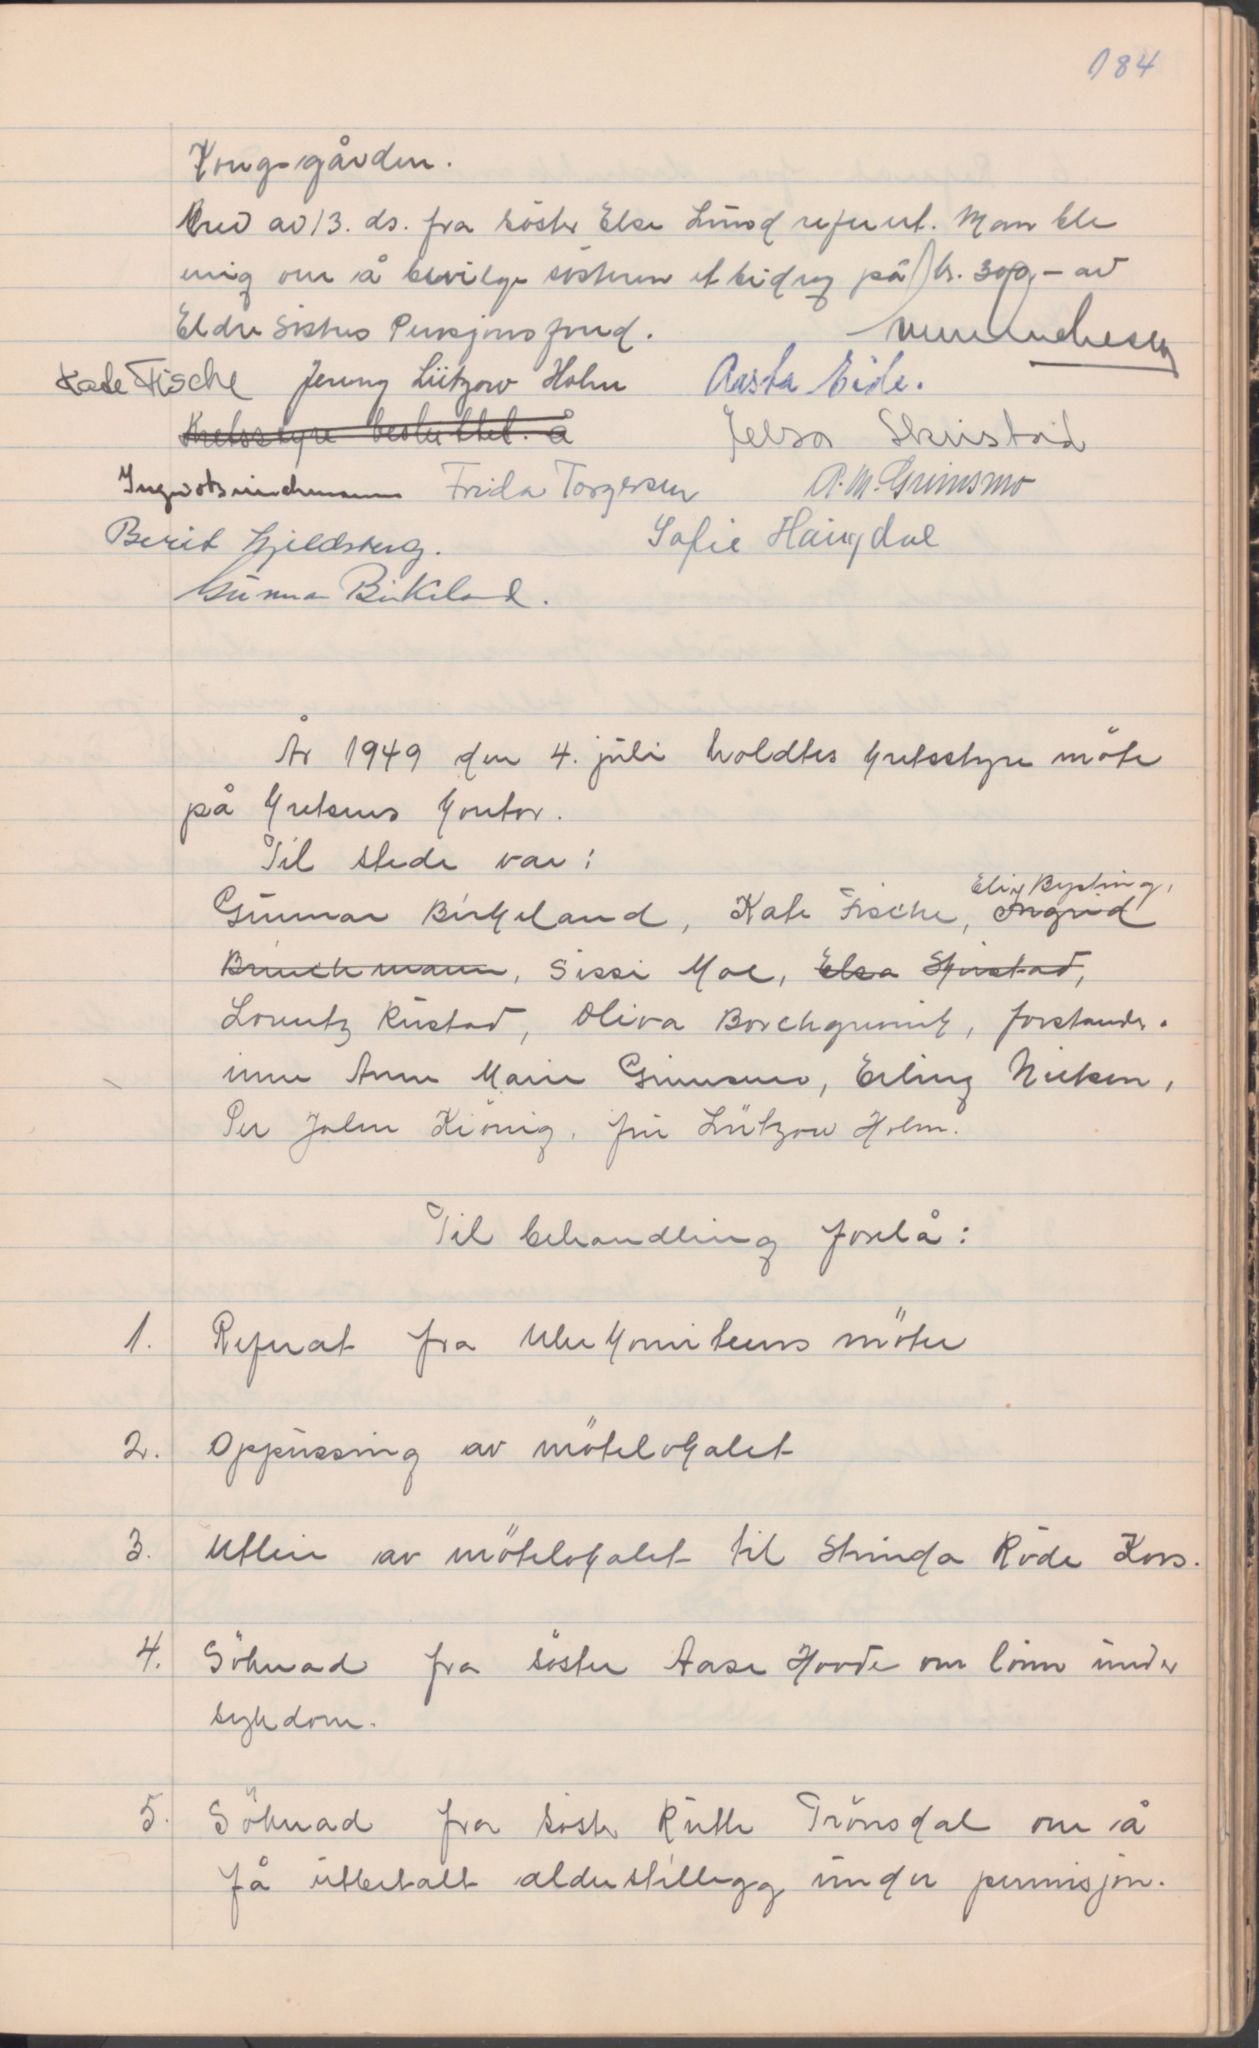 184
Kongsgården.
Brev av 13. ds. fra söster Else Lund referert. Man ble
enig om å bevilge sösteren et bidrag på kr. 300,- av
Eldre Søstres Pensjonsfond.
Kate Fische Jenny Lützow Holm Aasta Eide.
Kretsstyre besluttet å
Skirstad
Frida Torgersen A. M. Grimsmo
Berit Kjeldsberg. Sofie Haugdal
Gunnar Birkeland.
År 1949 den 4. juli holdtes kretsstyre möte
på kretsens kontor.
Til stede var:
Gunnar Birkeland, Kate Fische, Ingrid
Bruchmann, Sissi Moe, Elsa Skirstad,
Lorentz Rustad, Oliva Borchgrevink, forstander-
inne Anne Marie Grimsmo, Erling Nielsen,
Per John Kiönig, fru Lützow Holm.
Til behandling forelå:
1. Referat fra Ulvekomiteens möter
2. Oppussing av mötelokalet
3. Utleie av mötelokalet til Strinda Röde Kors.
4. Söknad fra söster Aase Hovde om lönn under
sykdom.
5. Söknad fra söster Ruth Trönsdal om å
få utbetalt alderstillegg under permisjon.